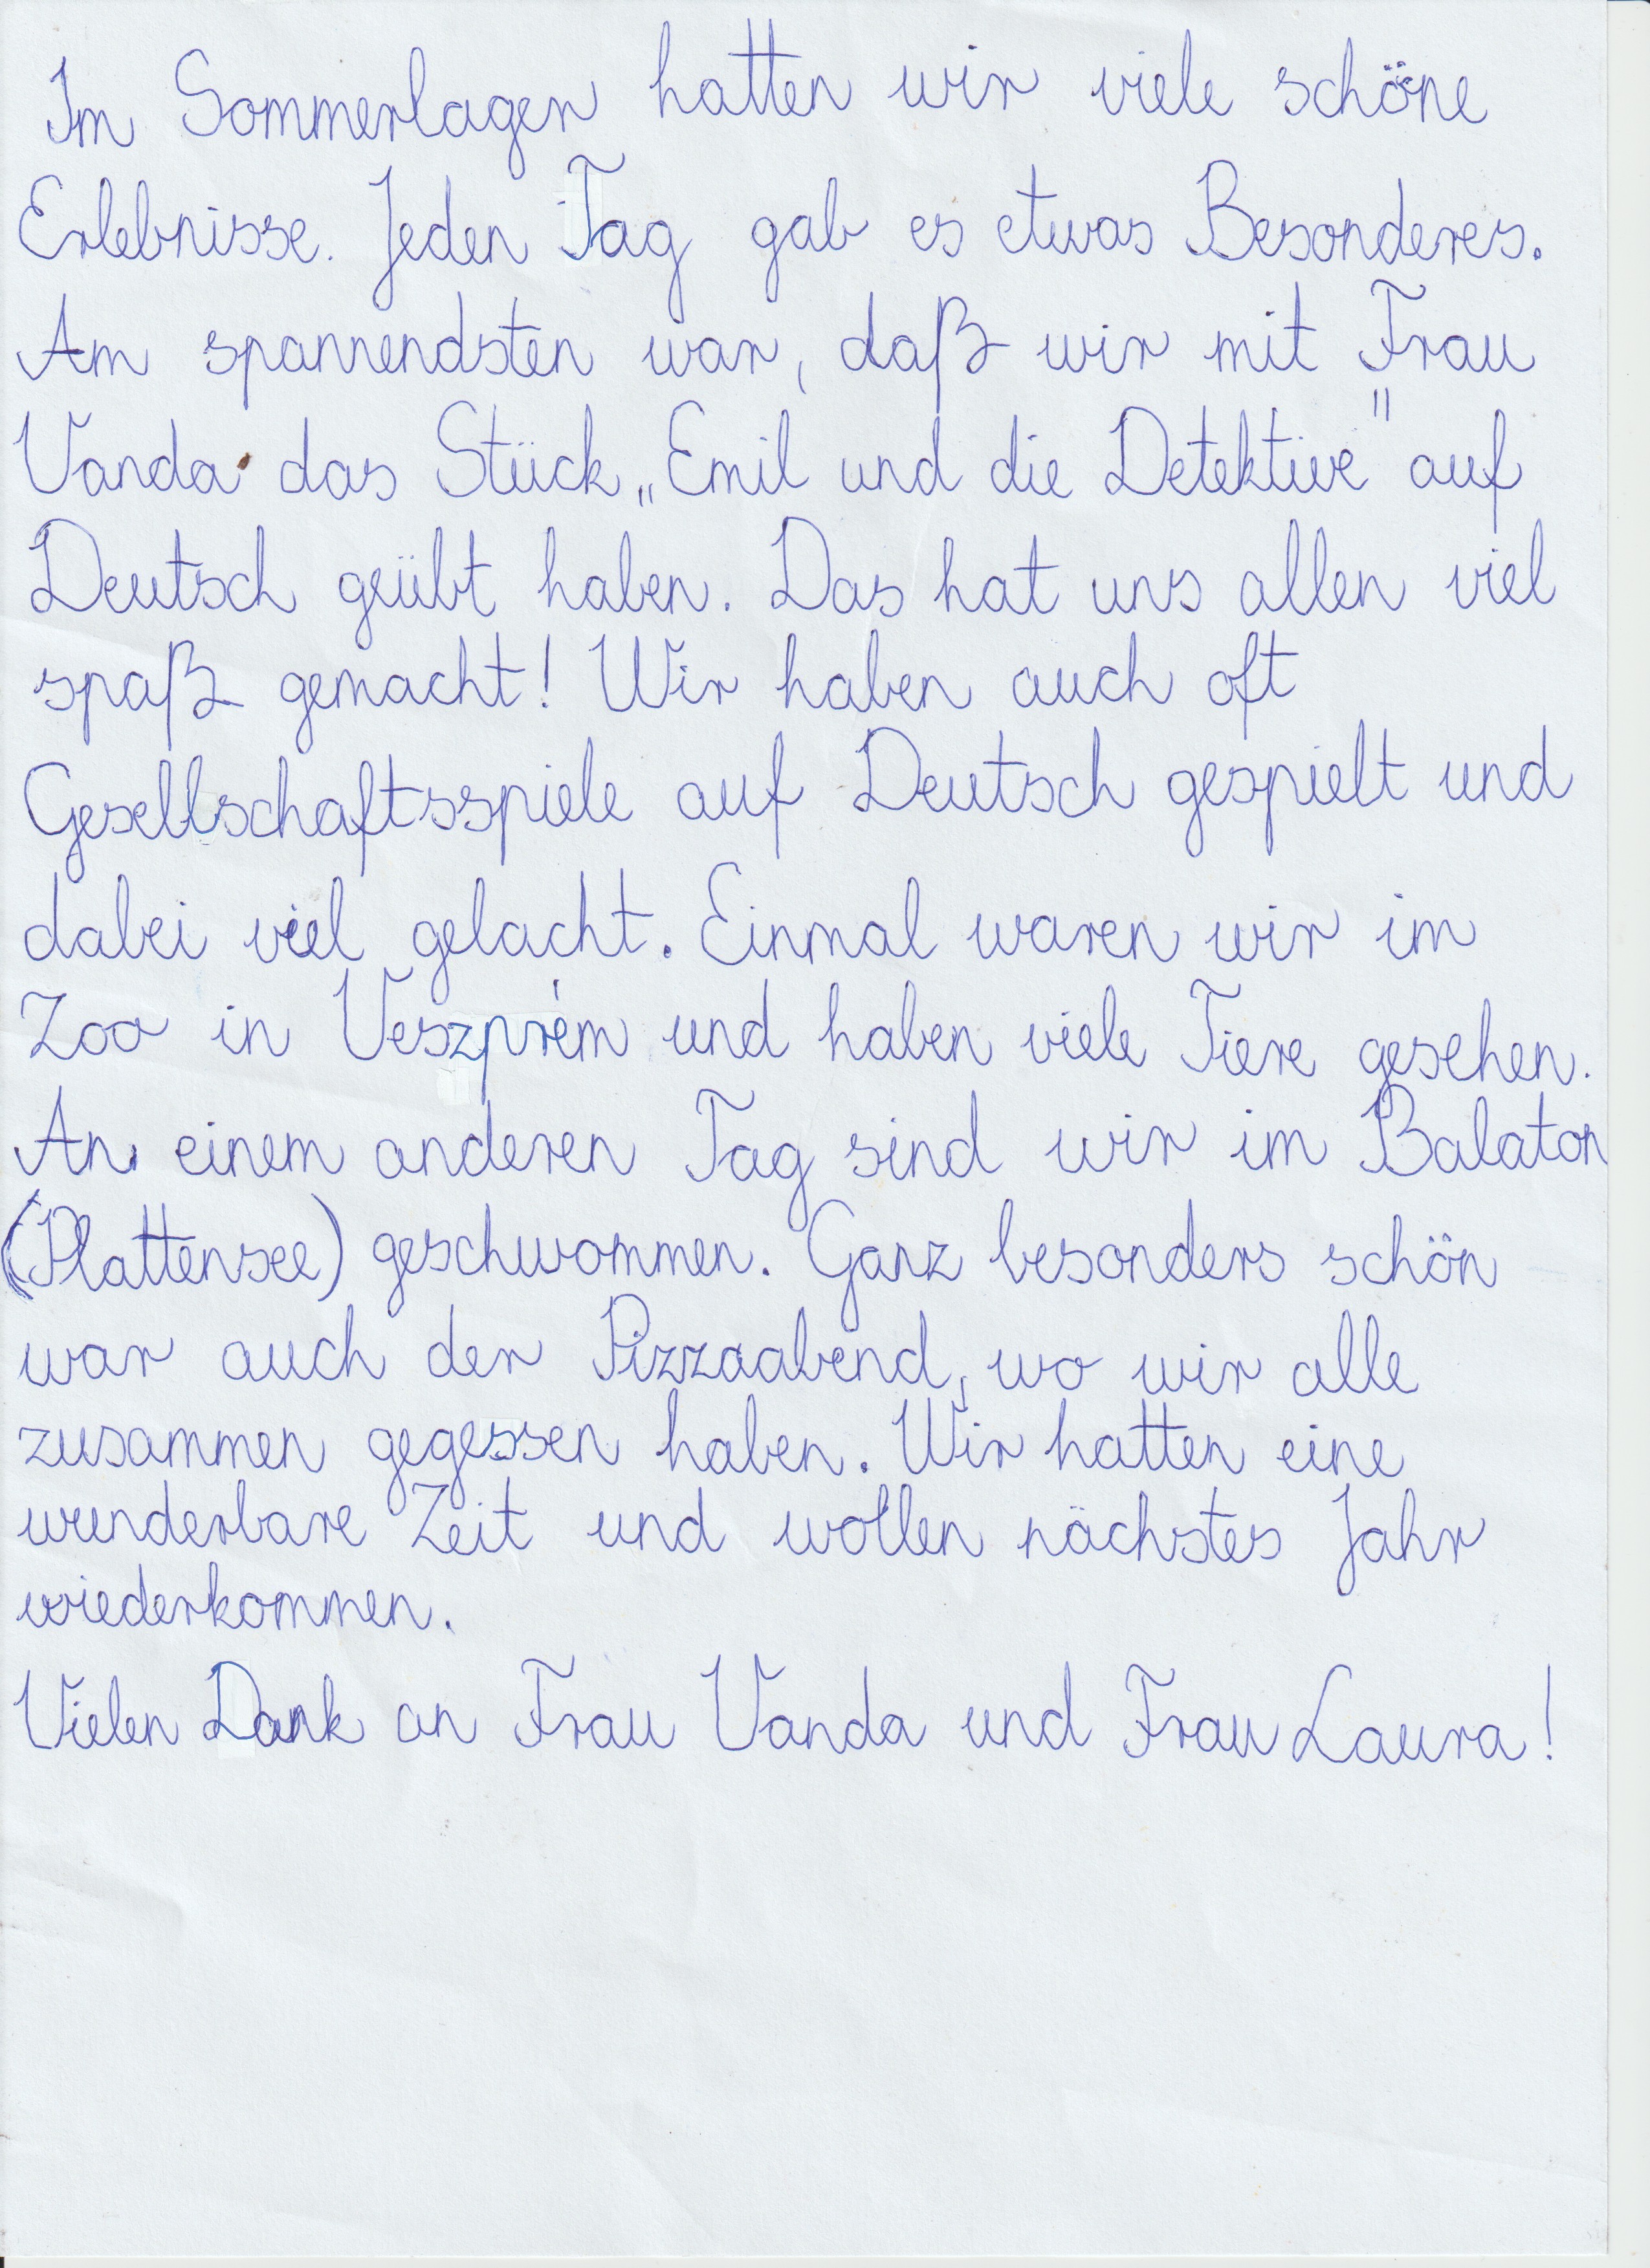 Im Sommerlager hatten wir viele schöne
Erlebnisse. Jeden Tag gab es etwas Besonderes.
Am spannendsten war, daß wir mit Frau
Vanda das Stück „Emil und die Detektive" auf
Deutsch geübt haben. Das hat uns allen viel
spaß gemacht! Wir haben auch oft
Gesellschaftsspiele auf Deutsch gespielt und
dabei viel gelacht. Einmal waren wir im
Zoo in Veszprém und haben viele Tiere gesehen.
An einem anderen Tag sind wir im Balaton
(Plattensee) geschwommen. Ganz besonders schön
war auch der Pizzaabend, wo wir alle
zusammen gegessen haben. Wir hatten eine
wunderbare Zeit und wollen nächstes Jahr
wiederkommen.
Vielen Dank an Frau Vanda und Frau Laura!